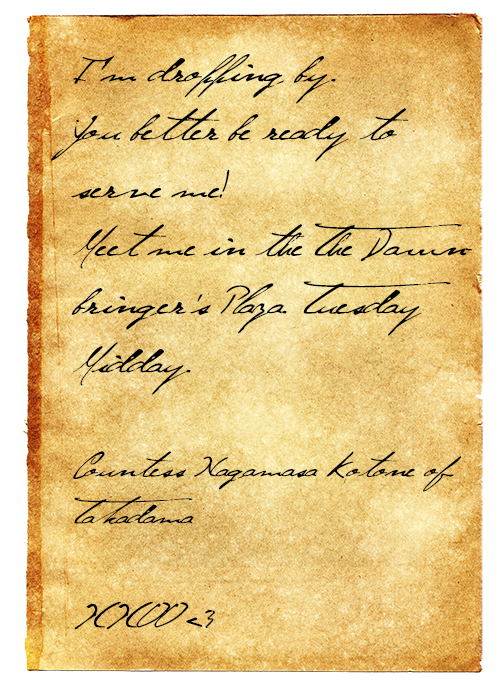 I'm dropping by.
You better be ready to
serve me!
Meet me in the the Dawn
bringer's Plaza Tuesday
Midday.
Countess Nagamasa Kotone of
Takadama
XXOO <3